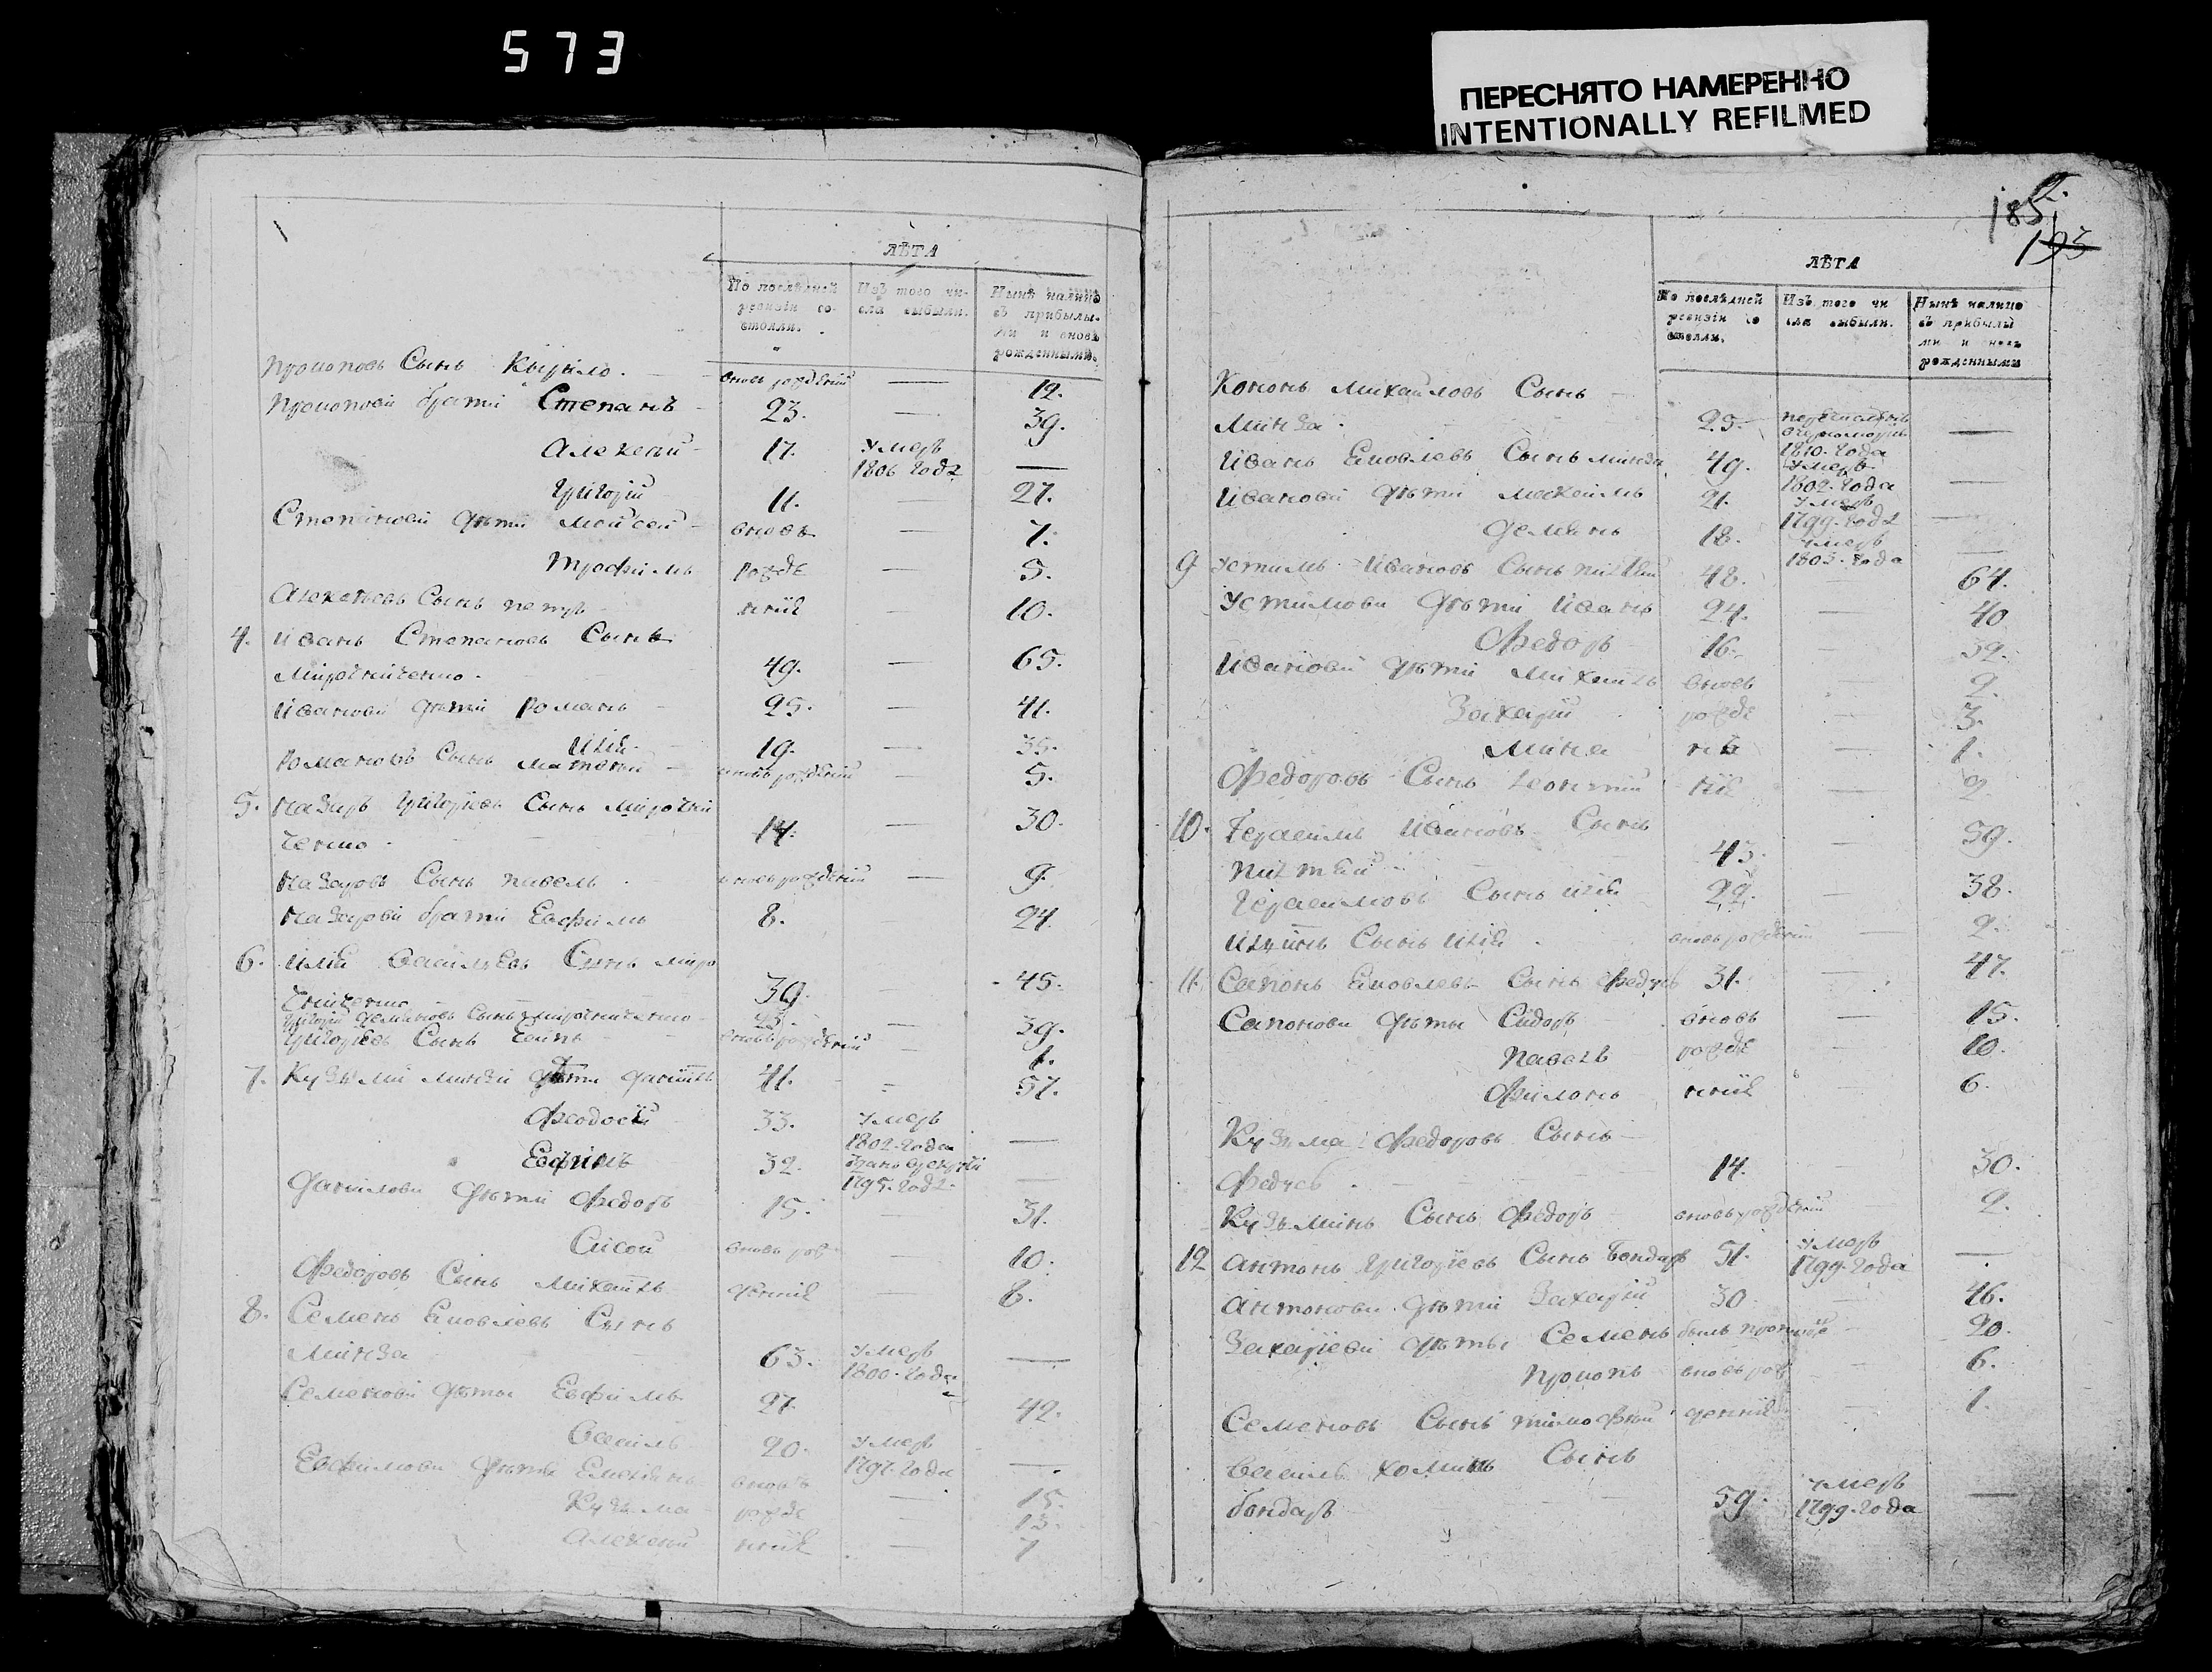 573
ПЕРЕСНЯТО НАМЕРЕННО
INTENTIONALLY REFILMED
ЛѢТА
По послѣдней ревизіи состояли.
Изъ того числа выбыли.
Нынѣ налицо съ прибылыми и вновь рожденными.
Прокоповъ Сынъ Кырило вновь рожденій — 12.
Прокопови братія Степанъ 23. — 39.
Алексей 17. умеръ 1806 года —
Григорій 11. — 27.
Степанови дѣти Мойсей вновь — 7.
Трофимъ рожде — 5.
Алексеевъ Сынъ Петръ нніе — 10.
4. Иванъ Степановъ Сынъ
Мирошниченко 49. — 65.
Иванови дѣти Романъ 25. — 41.
Илія 19. — 35.
Романовъ Сынъ Матвей вновь рожденій — 5.
5. Назаръ Григоріевъ Сынъ Мирошни
ченко 14. — 30.
Назаровъ Сынъ Павелъ вновь рожденій — 9.
Назарови братія Евфимъ 8. 24
6. Илія Васильевъ Сынъ Миро
шниченко 39. — 45.
Григорій Деминовъ Сынъ Мирошниченко 23. — 39.
Григоріевъ Сынъ вновь рожденій — 1.
7. Кузьми Минзи дѣти Даніилъ 41. — 57.
Феодосій 33. умеръ 1802. года —
Евфимъ 32. 1795. года —
Данилови дѣти Федоръ 15. — 31.
Сисой вновь рож — 10.
Федоровъ Сынъ Михаилъ денніе — 8.
8. Семенъ Яковлевъ Сынъ
Минза 63. умеръ 1800. года —
Семенови дѣти Евфимъ 27 42.
Василь 20. умеръ 1797. года —
Евфимови дѣти Емельянъ вновь — 15.
Кузьма рожде — 13.
Алексей нніе — 7
185
193
ЛѢТА
По послѣдней ревизіи состояли.
Изъ того числа выбыли.
Нынѣ налицо съ прибылыми и вновь рожденными
Кононъ Михайловъ Сынъ
Минза 25. 1810. года —
Иванъ Яковлевъ Сынъ Минза 49. умеръ 1802. года —
Иванови дѣти Максимъ 21. умеръ 1799. года —
Демянъ 18. умеръ 1803. года —
9 Устимъ Ивановъ Сынъ 48. 64.
Устимови дѣти Иванъ 24. — 40
Федоръ 16. — 32.
Иванови дѣти Михаилъ вновь — 9.
Захарій рожде — 3.
Мина — 1.
Федоровъ Сынъ Леонтій — 2
10. Герасимъ Ивановъ Сынъ
43. — 59.
Герасимовъ Сынъ Илія 22. — 38.
Ильинъ Сынъ Илія вновь рожденій — 2.
11. Сапонъ Яковлевъ Сынъ 31. — 47.
Сапонови дѣты Сидоръ вновь — 15.
Павелъ рожде 10.
Филонъ нніе — 6.
Кузьма Федоровъ Сынъ
14. 30.
Кузьминъ Сынъ Федоръ вновь рожденій 2.
12 Антонъ Григоріевъ Сынъ Бондарь 51. умеръ 1799. года —
Антонови дѣти Захарій 30. — 46.
Захаріеви дѣты Семенъ 20.
Прокопъ вновь рож — 6.
Семеновъ Сынъ Тимофей денніе 1.
Василь Хоминъ Сынъ
бондарь 59. умеръ 1799. года —